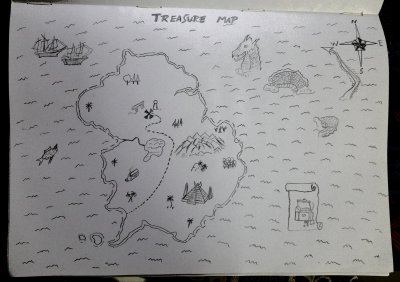 TREASURE MAP
N
E
S